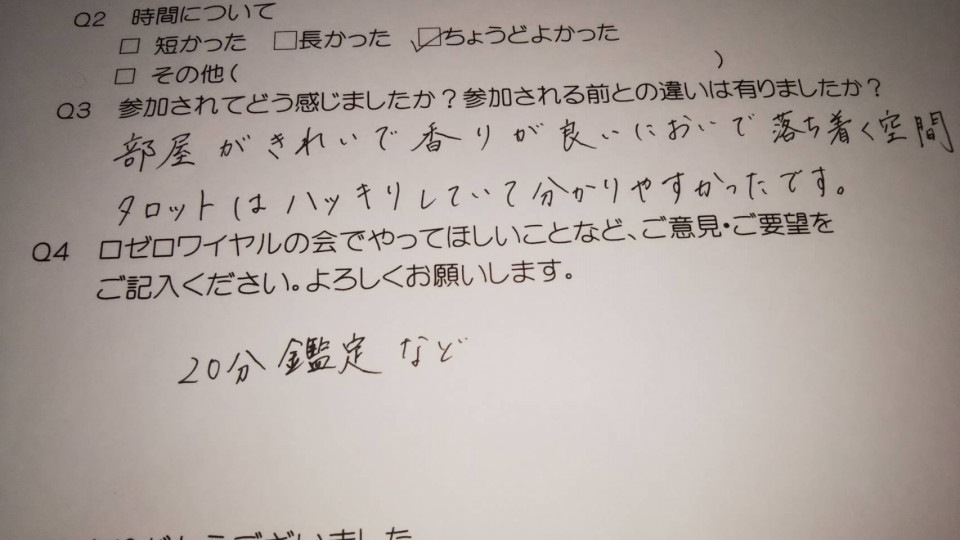 Q2 時間について
□ 短かった □長かった ☑ちょうどよかった
□ その他( )
Q3 参加されてどう感じましたか?参加される前との違いは有りましたか?
部屋がきれいで香りが良いにおいで落ち着く空間
タロットはハッキリしていて分かりやすかったです。
Q4 ロゼロワイヤルの会でやってほしいことなど、ご意見・ご要望を
ご記入ください。よろしくお願いします。
20分鑑定など
ございました